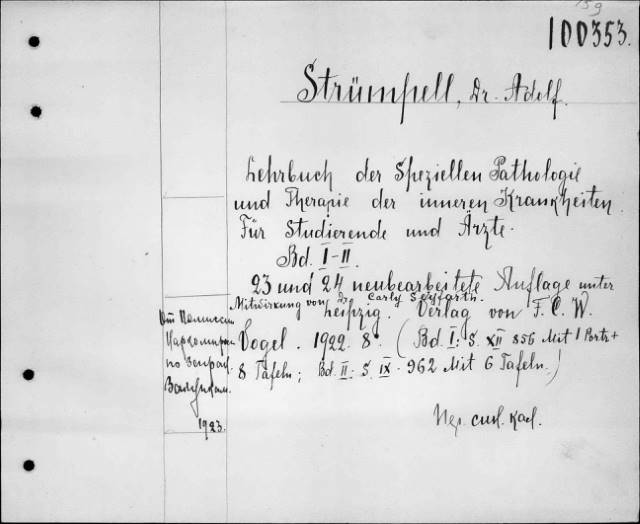 159
100353.
Strümpell, Dr. Adolf.
Lehrbuch der Speziellen Pathologie
und Therapie der inneren Krankheiten.
Für Studierende und Ärzte.
Bd. I-II.
23 und 24 neubearbeitete Auflage unter
Mitwirkung von Dr. Carly Seyfarth.
Leipzig. Verlag von F. C. W.
Vogel. 1922. 8°. (Bd. I: S. XII 856 Mit 1 Portr. +
8 Tafeln; Bd. II: S. IX - 962 Mit 6 Tafeln.)
От Комиссии
Наркоминдел
по
1923.